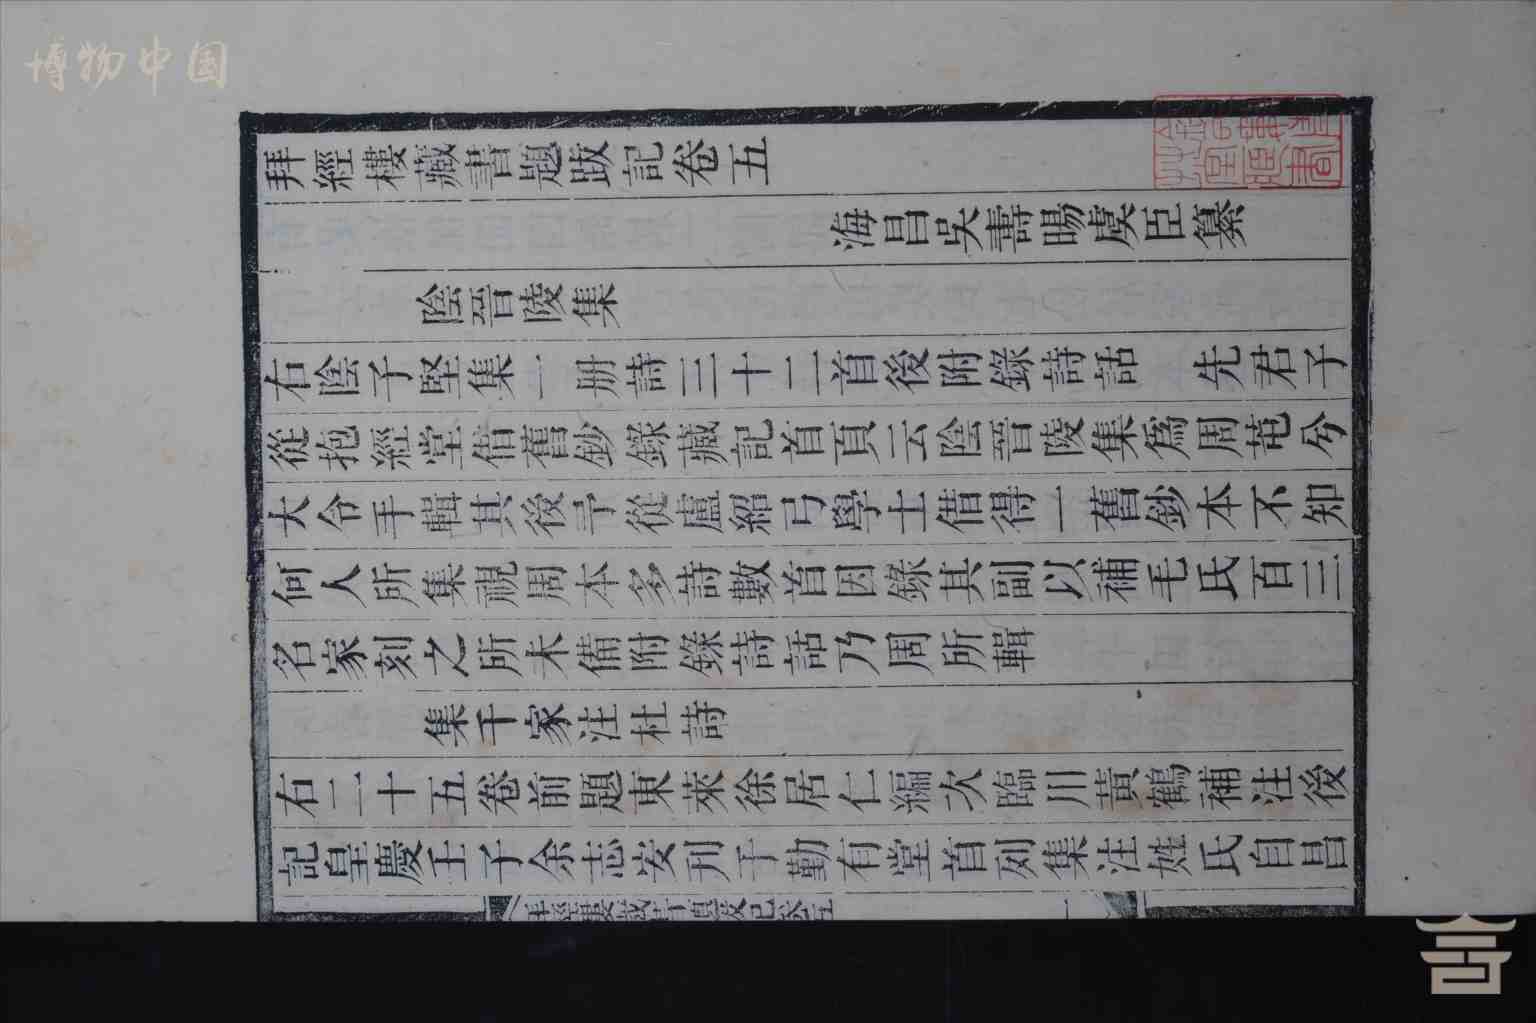 博物中国
拜經樓藏書題跋記卷五
海昌吳壽暘虞臣纂
陰晉陵集
右陰子堅集一册詩三十二首後附錄詩話 先君子
從抱經堂借舊鈔錄藏記首頁云陰晉陵集爲周芚兮
大令手輯其後予從盧紹弓學士借得一舊鈔本不知
何人所集視周本多詩數首因錄其副以補毛氏百三
名家刻之所未備附錄詩話乃周所輯
集千家注杜詩
右二十五卷前題東萊徐居仁編次臨川黃鶴補注後
記皇慶壬子余志安刊于勤有堂首列集注姓氏自昌
拜經樓藏書題跋記卷五 一